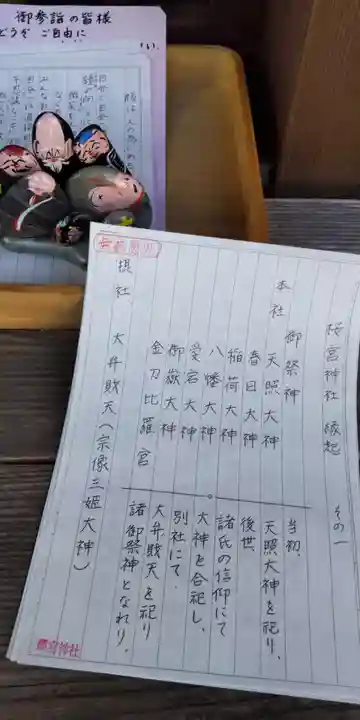 御参詣の皆様
どうぞ ご自由に
桜宮神社 縁起 その一
御祭神
本社 天照大神
春日大神
稲荷大神
八幡大神
愛宕大神
御嶽大神
金刀比羅宮
摂社 大弁財天(宗像三姫大神)
当初、
天照大神を祀り、
後世
諸氏の信仰にて
大神を合祀し、
別社にて
大弁財天を祀り
諸御祭神となれり。
櫻宮神社